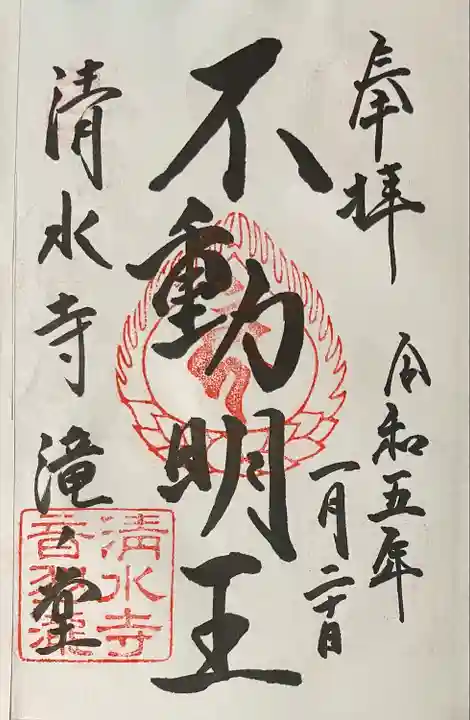 奉拝
令和五年
一月二十日
不動明王
清水寺滝ノ堂
清水寺